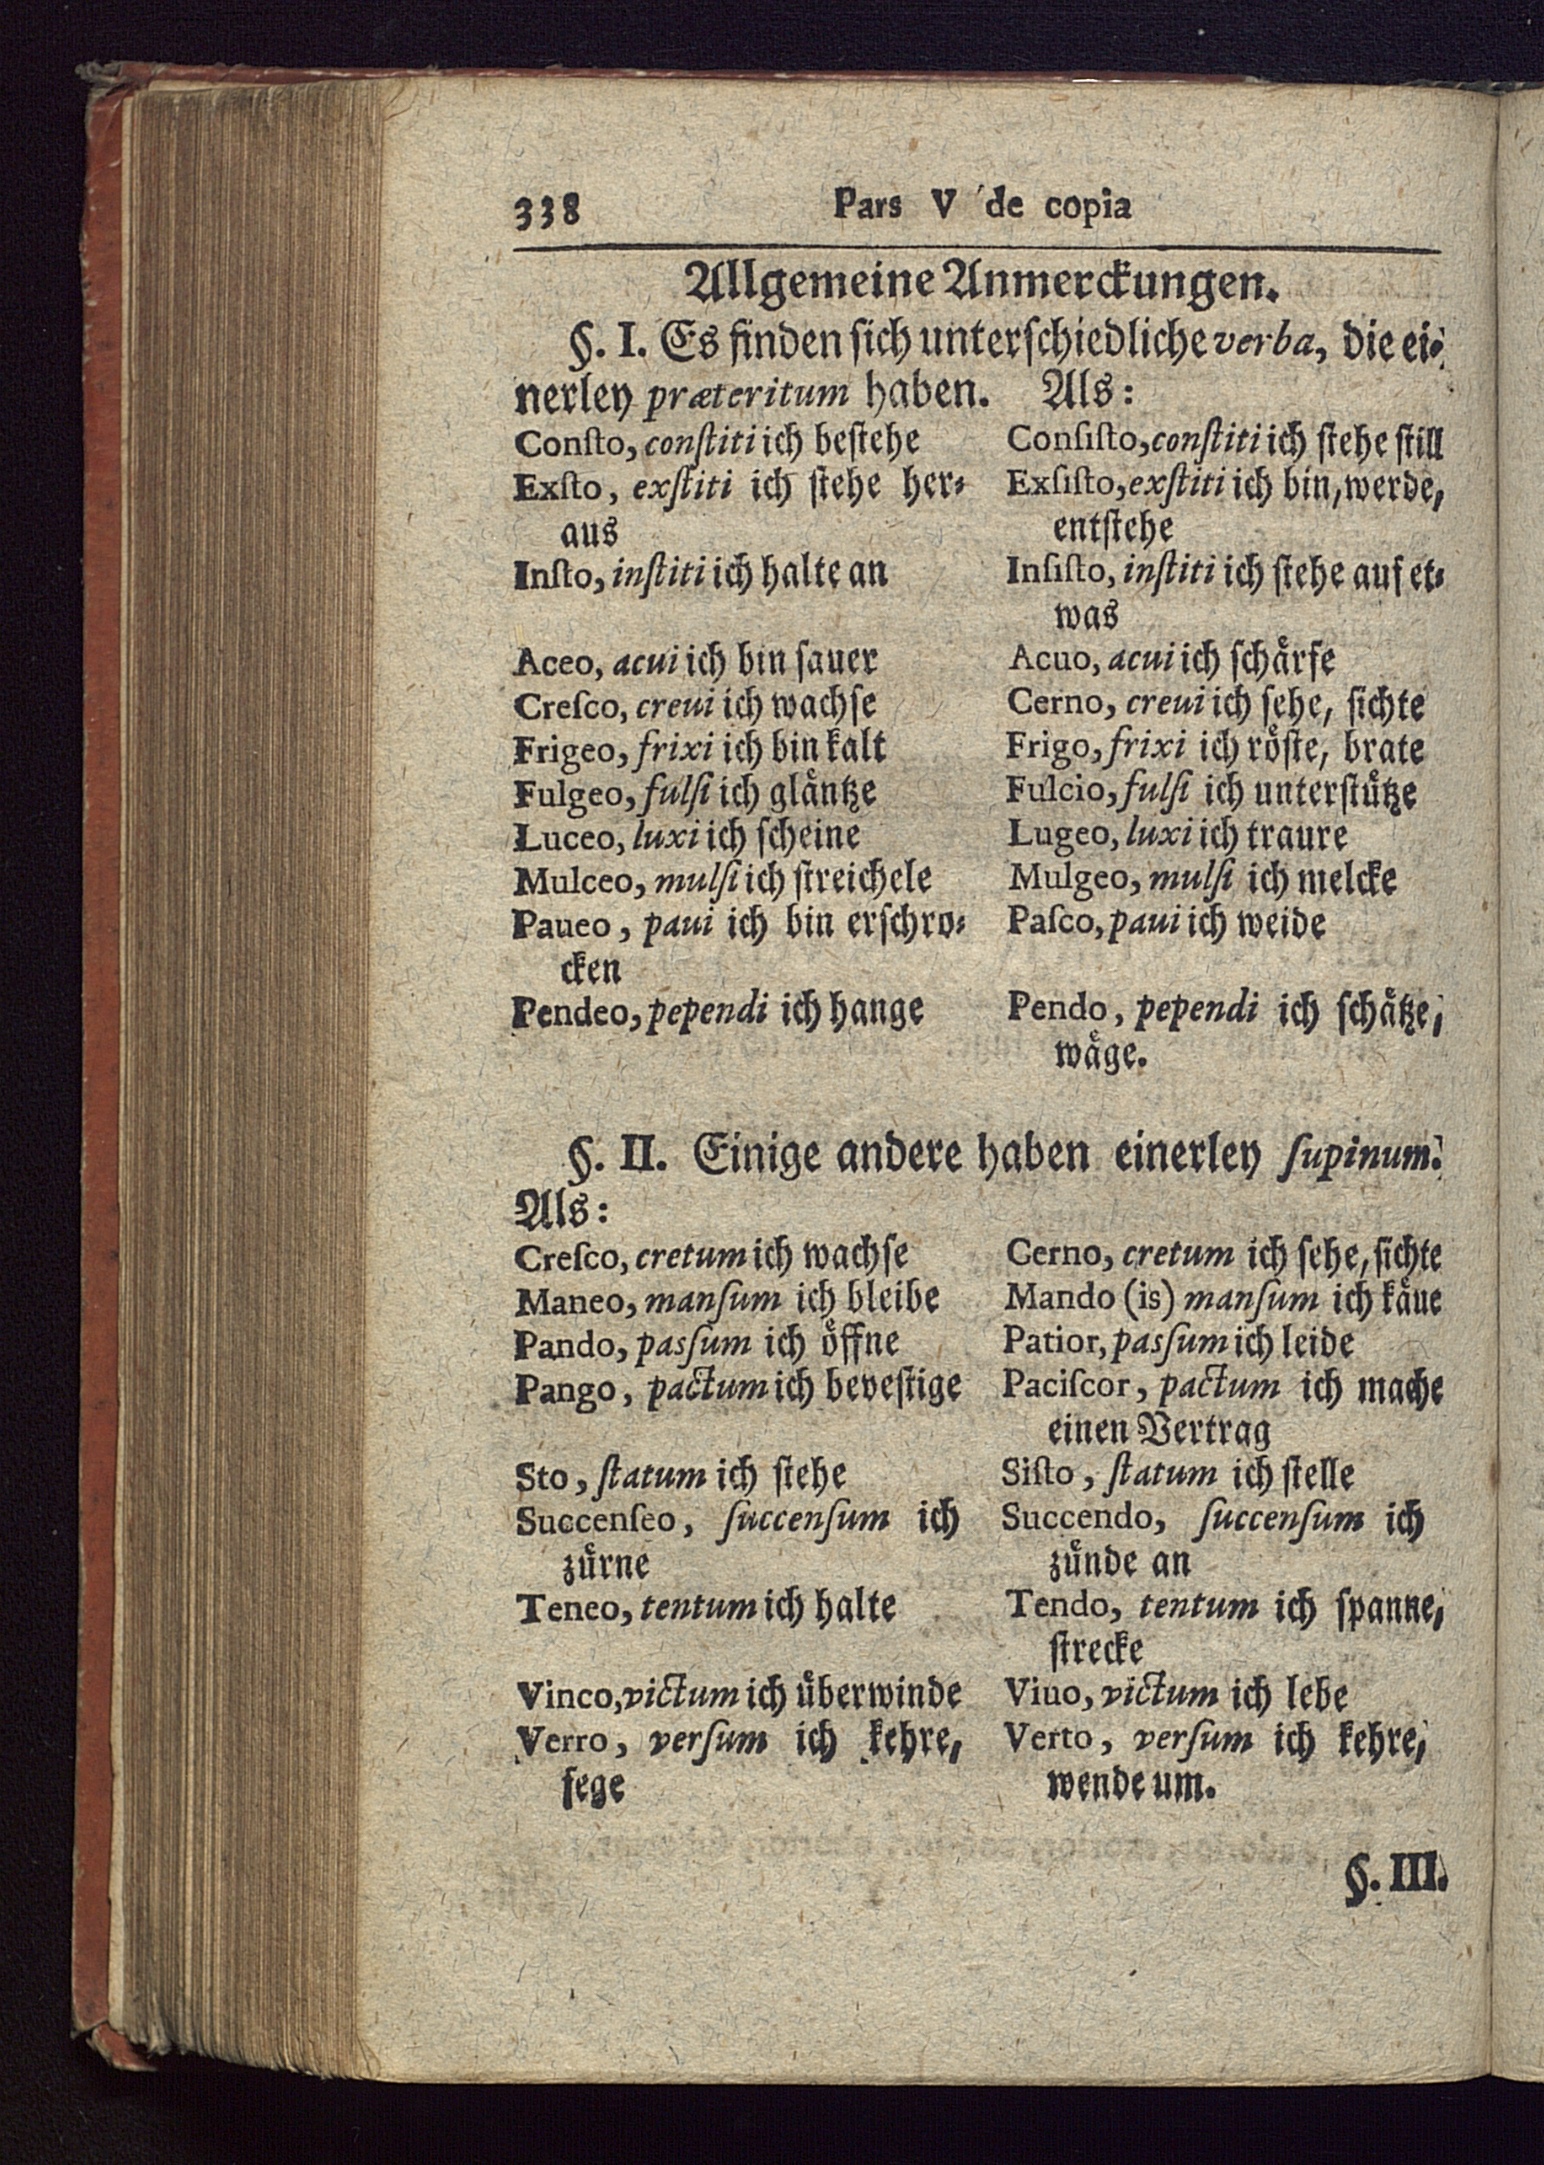 338 Pars V de copia
Allgemeine Anmerckungen.
§. I. Es finden ſich unterſchiedliche verba, die ei⸗
nerley præteritum haben. Als:
Conſto, conſtiti ich beſtehe
Exſto, exſtiti ich ſtehe her⸗
aus
Inſto, inſtiti ich halte an
Aceo, acui ich bin ſauer
Creſco, creui ich wachſe
Frigeo, frixi ich bin kalt
Fulgeo, fulſi ich glaͤntze
Luceo, luxi ich ſcheine
Mulceo, mulſi ich ſtreichele
Paueo, paui ich bin erſchro⸗
cken
Pendeo, pependi ich hange
Conſiſto, conſtiti ich ſtehe ſtill
Exſiſto, exſtiti ich bin, werde,
entſtehe
Inſiſto, inſtiti ich ſtehe auf et⸗
was
Acuo, acui ich ſchaͤrfe
Cerno, creui ich ſehe, ſichte
Frigo, frixi ich roͤſte, brate
Fulcio, fulſi ich unterſtuͤtze
Lugeo, luxi ich traure
Mulgeo, mulſi ich melcke
Paſco, paui ich weide
Pendo, pependi ich ſchaͤtze,
waͤge.
§. II. Einige andere haben einerley ſupinum.
Als:
Creſco, cretum ich wachſe
Maneo, manſum ich bleibe
Pando, pasſum ich oͤffne
Pango, pactum ich beveſtige
Sto, ſtatum ich ſtehe
Succenſeo, ſuccenſum ich
zuͤrne
Teneo, tentum ich halte
Vinco, victum ich uͤberwinde
Verro, verſum ich kehre,
fege
Cerno, cretum ich ſehe, ſichte
Mando (is) manſum ich kaͤue
Patior, pasſum ich leide
Paciſcor, pactum ich mache
einen Vertrag
Siſto, ſtatum ich ſtelle
Succendo, ſuccenſum ich
zuͤnde an
Tendo, tentum ich ſpanne,
ſtrecke
Viuo, victum ich lebe
Verto, verſum ich kehre,
wende um.
§. III.